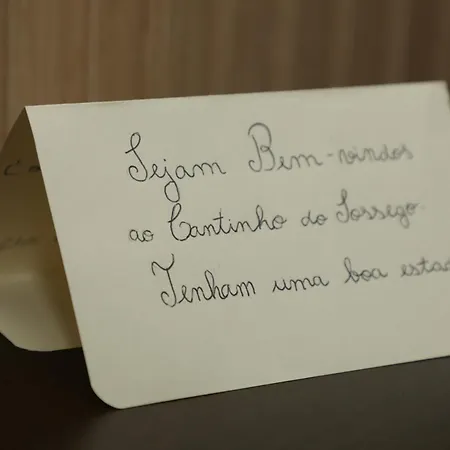 Sejam Bem-vindos
ao Cantinho do Sossego.
Tenham uma boa estad